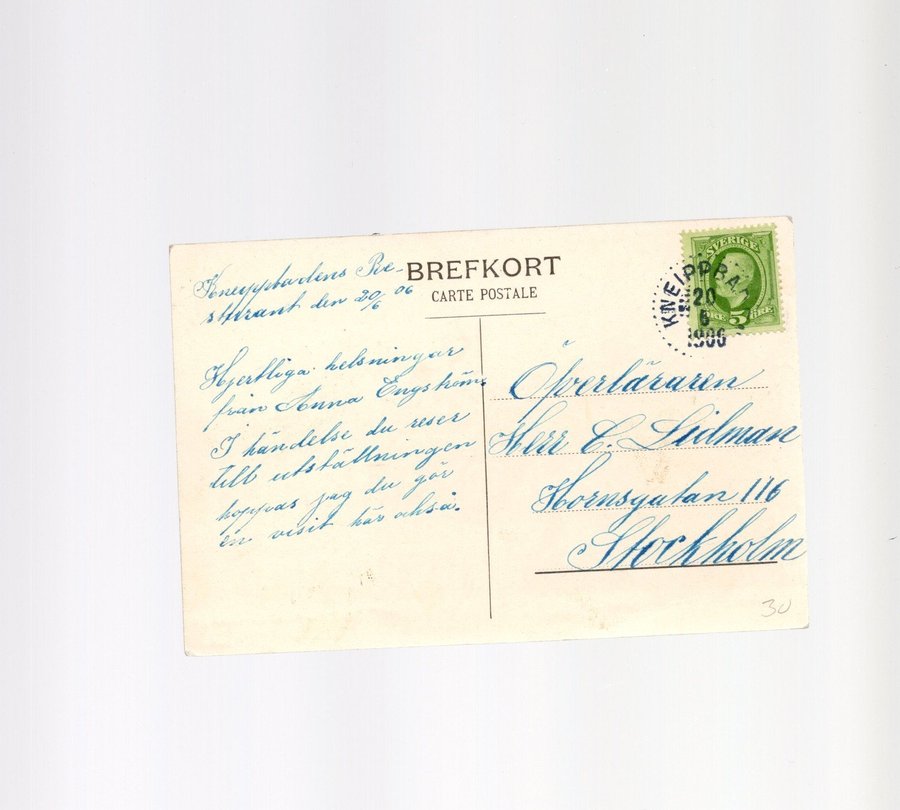 BREFKORT
CARTE POSTALE
SVERIGE
5
KNEIPPBAD
20
6
1906
Kneippbadens Re-
sturant den 20/6 06
Hjertliga helsningar
från Anna Engström.
I händelse du reser
till utställningen
hoppas jag du gör
en visit här också.
Öfverläraren
Herr C. Lidman
Hornsgatan 116
Stockholm
30